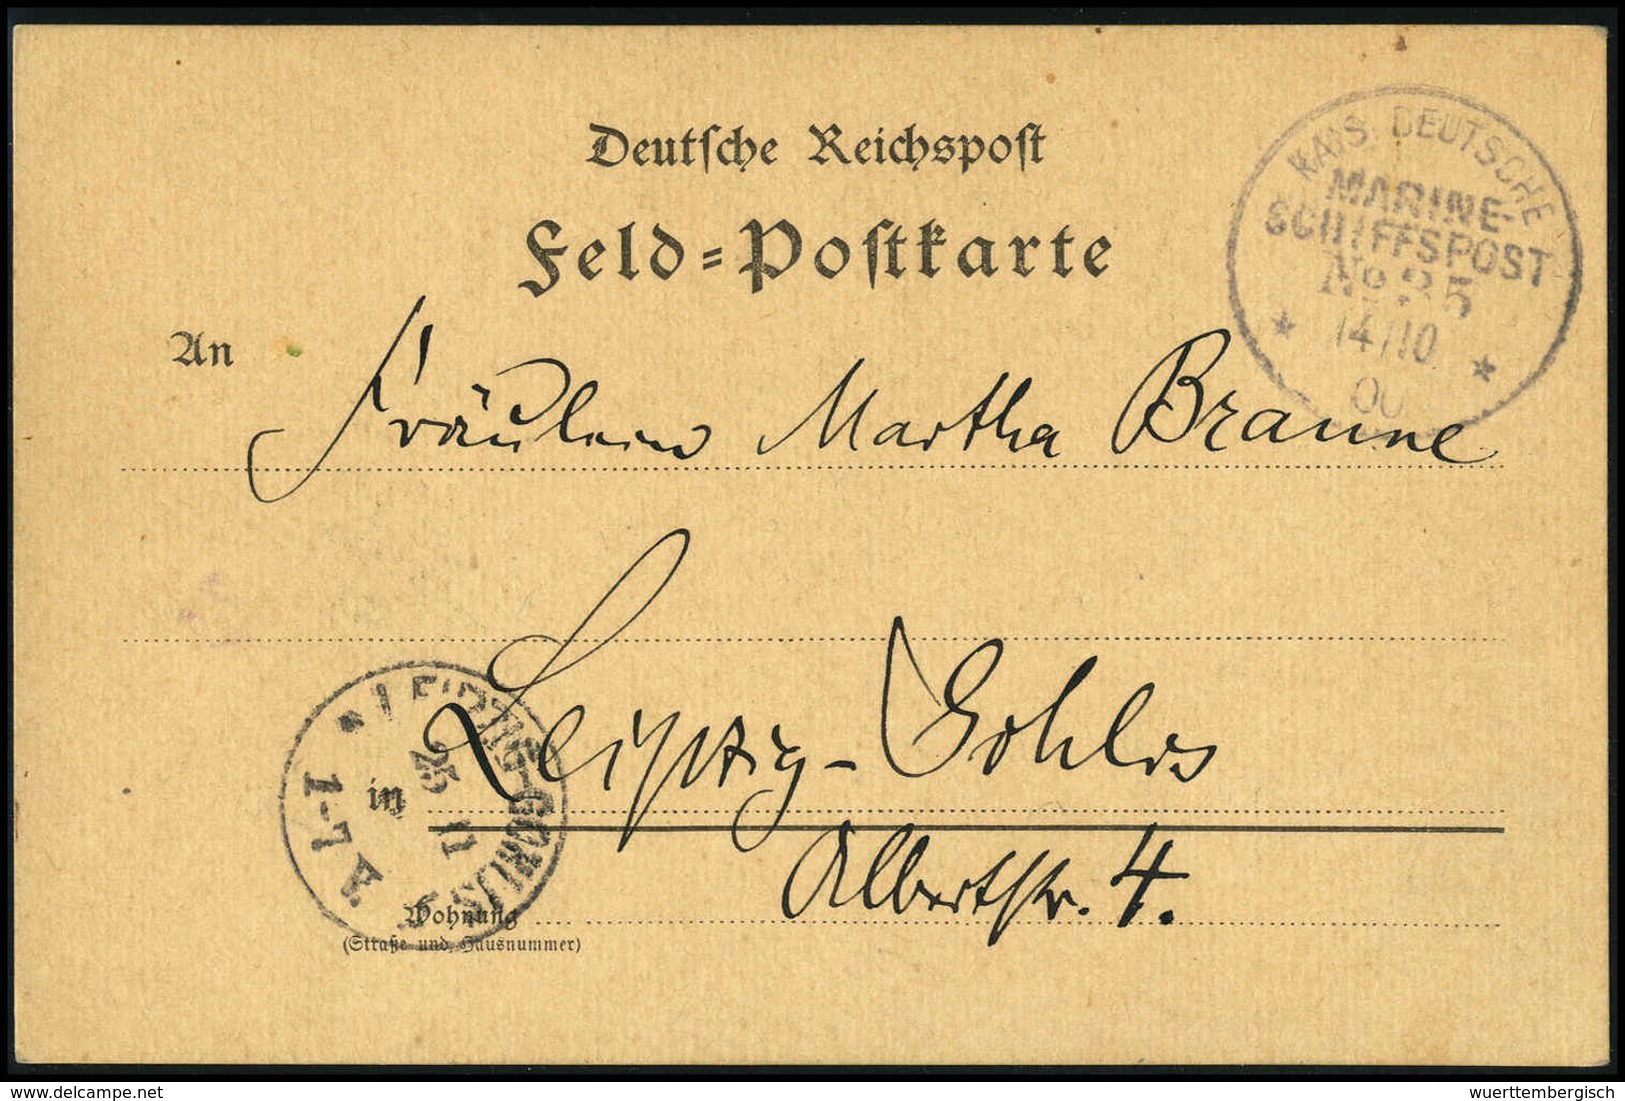 Deutsche Reichspost
Feld=Postkarte
KAIS. DEUTSCHE
MARINE-
SCHIFFSPOST
No 35
* 14/10 *
00
An
Fräulein Martha Braune
Leipzig-Gohlis
in
LEIPZIG-GOHLIS
25
11
7-1
Albertstr. 4.
Wohnung
(Straße und Hausnummer)
© www.delcampe.net
wuerttembergisch